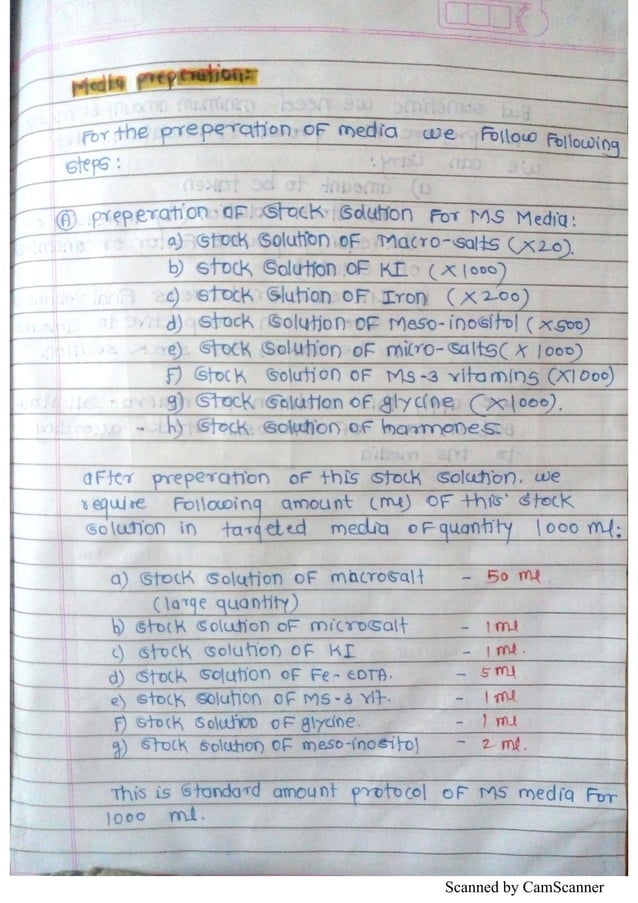 Media preperation:
For the preperation of media we Follow Following
steps:
Ⓐ preperation of stock solution For MS Media:
a) stock solution of Macro-salts (X20).
b) stock solution of KI (X1000)
c) stock slution of Iron (X200)
d) stock solution of Meso-inositol (X500)
e) stock solution of micro-salts (X 1000)
f) stock solution of MS-3 vitamins (X1000)
g) stock solution of glycine (X1000).
- h) stock solution of harmones.
after preperation of this stock solution. we
require Following amount (ml) of this stock
solution in targeted media of quantity 1000 ml:
a) stock solution of macrosalt - 50 ml.
(large quantity)
b) stock solution of microsalt - 1ml
c) stock solution of KI - 1ml.
d) stock solution of Fe-EDTA. - 5ml
e) stock solution of MS-3 vit. - 1ml
f) stock solution of glycine. - 1 ml
g) stock solution of meso-inositol - 2 ml.
This is standard amount protocol of MS media For
1000 ml.
Scanned by CamScanner